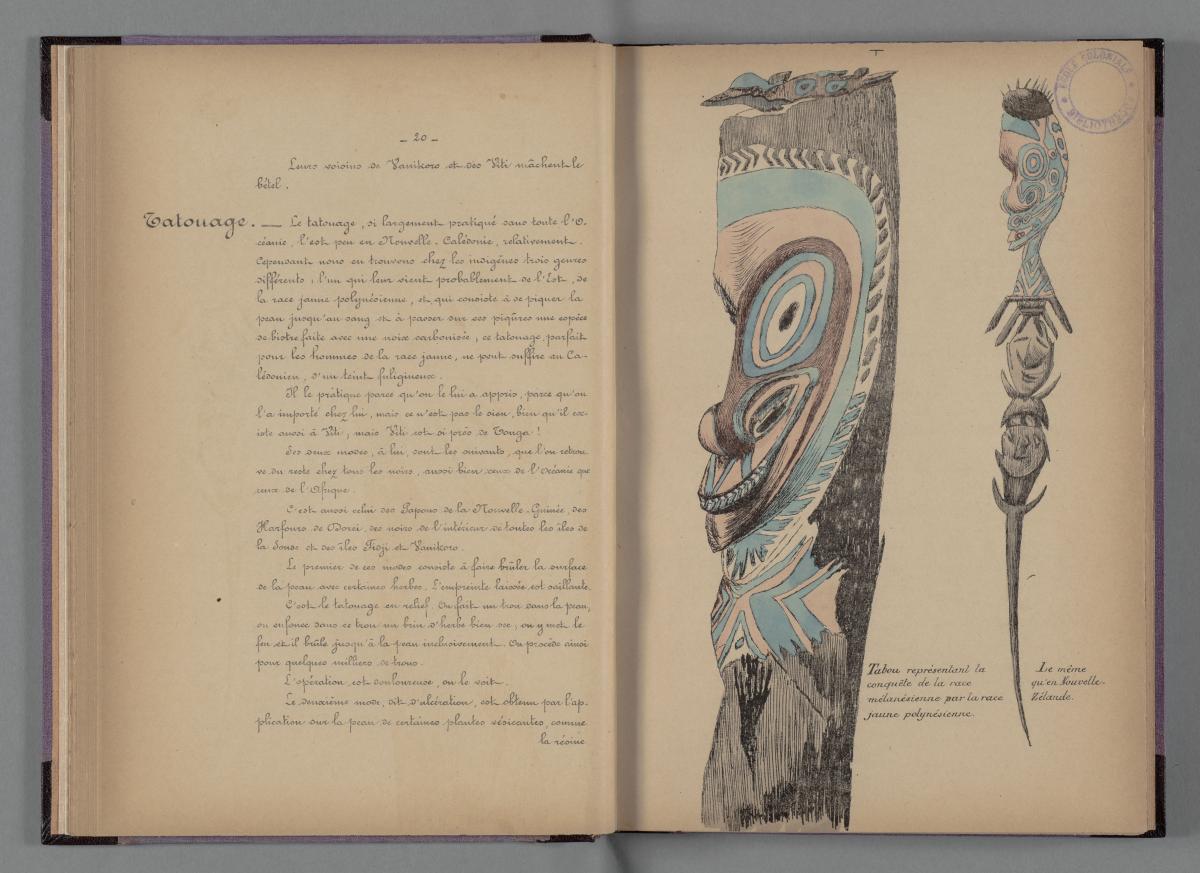 _ 20 _
Leurs voisins de Vanikoro et des Viti mâchent le
bétel.
Tatouage. — Le tatouage, si largement pratiqué dans toute l'O-
céanie, l'est peu en Nouvelle-Calédonie, relativement.
Cependant nous en trouvons chez les indigènes trois genres
différents ; l'un qui leur vient probablement de l'Est, de
la race jaune polynésienne, et qui consiste à se piquer la
peau jusqu'au sang et à passer sur ces piqûres une espèce
de bistre faite avec une noix carbonisée, ce tatouage, parfait
pour les hommes de la race jaune, ne peut suffire au Ca-
lédonien, d'un teint fuligineux.
Il le pratique parce qu'on le lui a appris, parce qu'on
l'a importé chez lui, mais ce n'est pas le sien, bien qu'il ex-
iste aussi à Viti, mais Viti est si près de Tonga !
Les deux modes, à lui, sont les suivants, que l'on retrou-
ve du reste chez tous les noirs, aussi bien ceux de l'Océanie que
ceux de l'Afrique.
C'est aussi celui des Papous de la Nouvelle-Guinée, des
Harfours de Dorei, des noirs de l'intérieur de toutes les îles de
la Sonde et des îles Fidji et Vanikoro.
Le premier de ces modes consiste à faire brûler la surface
de la peau avec certaines herbes. L'empreinte laissée est saillante.
C'est le tatouage en relief. On fait un trou dans la peau,
on enfonce dans ce trou un brin d'herbe bien sec, on y met le
feu et il brûle jusqu'à la peau inclusivement. On procède ainsi
pour quelques milliers de trous.
L'opération est douloureuse, on le voit.
Le deuxième mode, dit d'ulcération, est obtenu par l'ap-
plication sur la peau de certaines plantes vésicantes, comme
la résine
ÉCOLE COLONIALE
BIBLIOTHÈQUE
Tabou représentant la
conquête de la race
mélanésienne par la race
jaune polynésienne.
Le même
qu'en Nouvelle-
Zélande.